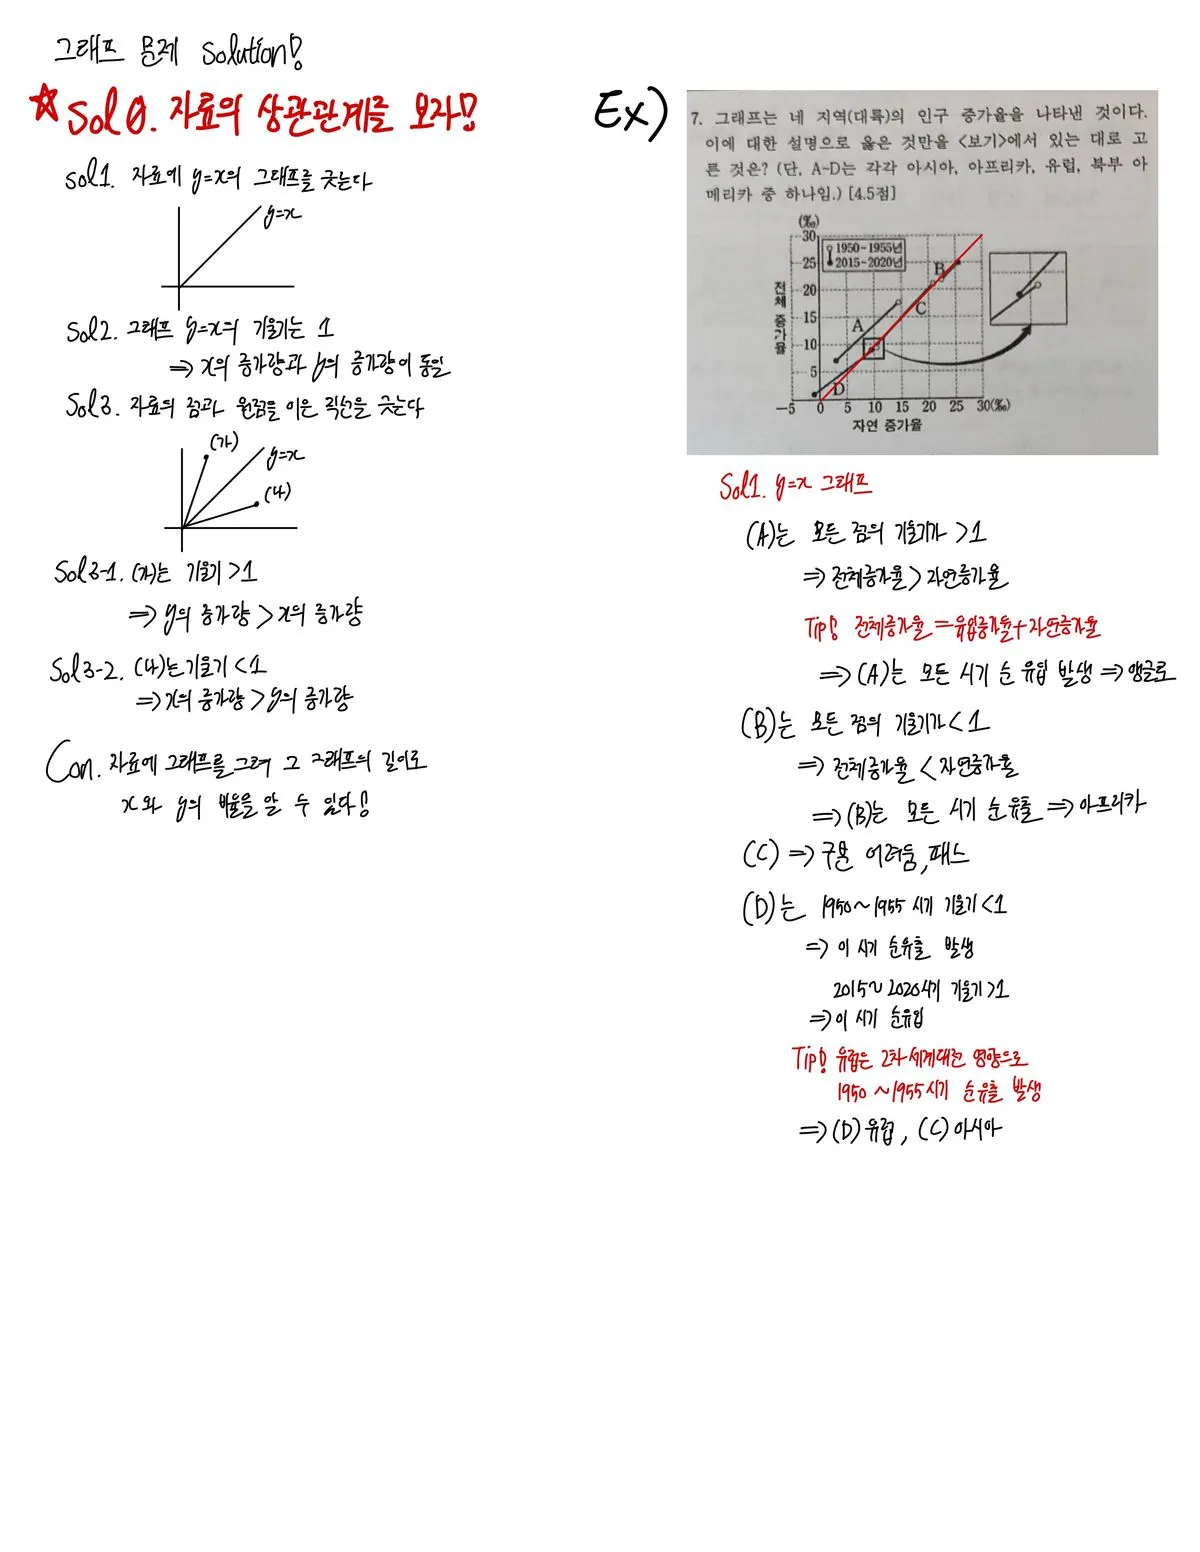 그래프 문제 Solution!
☆ Sol 0. 자료의 상관관계를 보자!
Sol1. 자료에 y=x의 그래프를 긋는다
y=x
Sol2. 그래프 y=x의 기울기는 1
⇒ x의 증가량과 y의 증가량이 동일
Sol3. 자료의 점과 원점을 이은 직선을 긋는다
(가)
y=x
(나)
Sol3-1. (가)는 기울기 >1
⇒ y의 증가량 > x의 증가량
Sol3-2. (나)는 기울기 <1
⇒ x의 증가량 > y의 증가량
Con. 자료에 그래프를 그려 그 그래프의 길이로
x와 y의 비율을 알 수 있다!
Ex)
7. 그래프는 네 지역(대륙)의 인구 증가율을 나타낸 것이다.
이에 대한 설명으로 옳은 것만을 <보기>에서 있는 대로 고
른 것은? (단, A~D는 각각 아시아, 아프리카, 유럽, 북부 아
메리카 중 하나임.) [4.5점]
(‰)
30
1950~1955년
2015~2020년
25
20
15
10
5
전체 증가율
A
B
C
D
-5 0 5 10 15 20 25 30(‰)
자연 증가율
Sol1. y=x 그래프
(A)는 모든 점의 기울기가 >1
⇒ 전체증가율 > 자연증가율
Tip! 전체증가율 = 유입증가율 + 자연증가율
⇒ (A)는 모든 시기 순 유입 발생 ⇒ 앵글로
(B)는 모든 점의 기울기가 <1
⇒ 전체증가율 < 자연증가율
⇒ (B)는 모든 시기 순유출 ⇒ 아프리카
(C) ⇒ 구분 어려움, 패스
(D)는 1950~1955 시기 기울기 <1
⇒ 이 시기 순유출 발생
2015~2020시기 기울기 >1
⇒ 이 시기 순유입
Tip! 유럽은 2차 세계대전 영향으로
1950~1955시기 순유출 발생
⇒ (D) 유럽, (C) 아시아